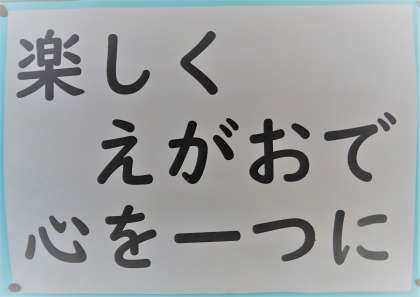 楽しく
えがおで
心を一つに